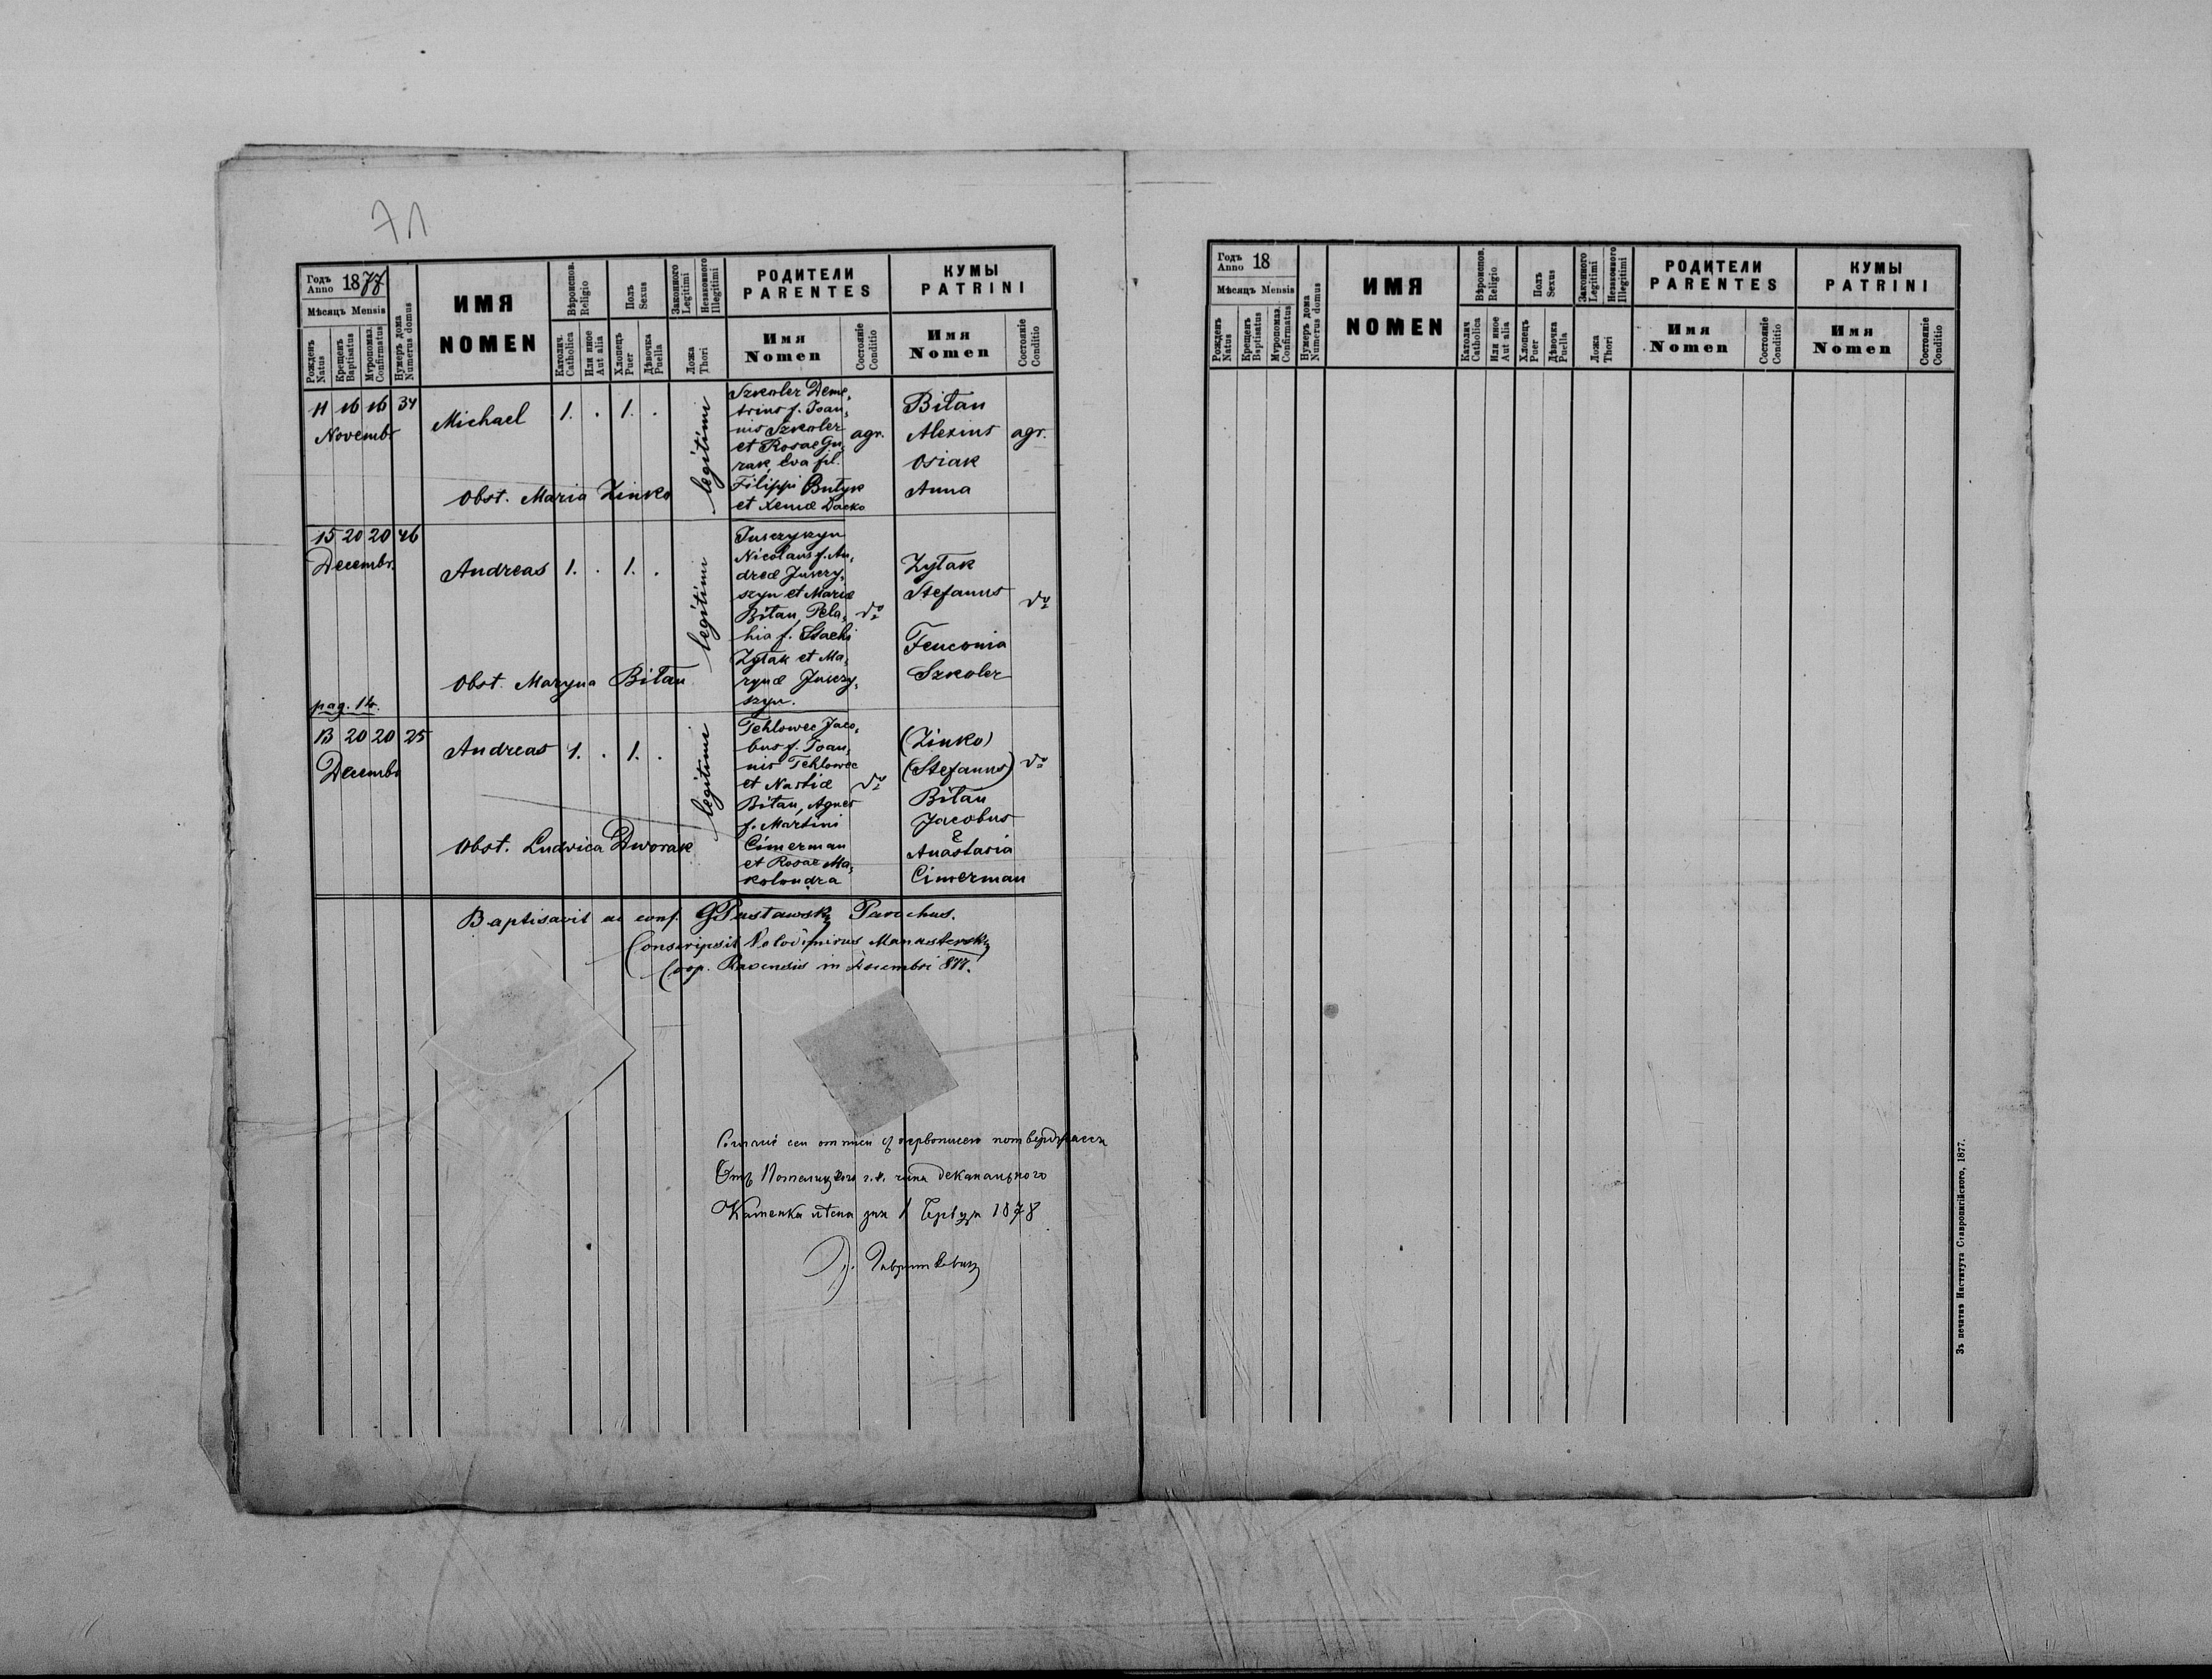 71
Годъ Anno 1877
Мѣсяцъ Mensis
Рожденъ Natus
Крещенъ Baptisatus
Мѵропомаз. Confirmatus
Нумеръ дома Numerus domus
ИМЯ
NOMEN
Вѣроиспов. Religio
Католич. Catholica
Или иное Aut alia
Полъ Sexus
Хлопецъ Puer
Дѣвочка Puella
Законного Legitimi
Незаконного Illegitimi
Ложа Thori
РОДИТЕЛИ
PARENTES
Имя
Nomen
Состояніе Conditio
КУМЫ
PATRINI
Имя
Nomen
Состояніе Conditio
11 16 16 34
Novembr
Michael 1. . 1. .
legitimi
Szkoler Deme,
trius f. Joan,
nis Szkoler
et Rosae Gu,
rak, Eva fil.
Filippi Butyk
et Xeniæ Dacko
agr.
Bitan
Alexius
Osiak
Anna
agr.
Obst. Maria Zinko
15 20 20 46
Decembr.
Andreas 1. . 1. .
legitimi
Juszczyszyn
Nicolaus f. An,
dreæ Juszczy,
szyn et Mariæ
Bitan, Pela,
hia f. Stachi
Zytak et Ma,
rynæ Juszczy,
szyn.
do
Zytak
Stefanus
Feuconia
Szkoler
do
Obst. Maryna Bitan
pag. 14.
13 20 20 25
Decembr
Andreas 1. . 1. .
legitimi
Tehlowec Jaco,
bus f. Joan,
nis Tehlowec
et Nastiæ
Bitan, Agnes
f. Martini
Cimerman
et Rosae Ma,
kolondra
do
(Zinko)
(Stefanus)
Bitan
Jacobus
&
Anastasia
Cimerman
do
Obst. Ludvica Dworak
Baptisavit ac conf. GPustawsky Parochus.
Conscripsit Volodimirus Manastersky
Coop. Ravensis in Decembri 877.
сеи отписи съ первописею потверджаеся
Отъ г. к. чина деканального
Каменка дня 1 1878
Годъ Anno 18
Мѣсяцъ Mensis
Рожденъ Natus
Крещенъ Baptisatus
Мѵропомаз. Confirmatus
Нумеръ дома Numerus domus
ИМЯ
NOMEN
Вѣроиспов. Religio
Католич Catholica
Или иное Aut alia
Полъ Sexus
Хлопецъ Puer
Дѣвочка Puella
Законного Legitimi
Незаконного Illegitimi
Ложа Thori
РОДИТЕЛИ
PARENTES
Имя
Nomen
Состояніе Conditio
КУМЫ
PATRINI
Имя
Nomen
Состояніе Conditio
Зъ печатнѣ Института Ставропигійского, 1877.